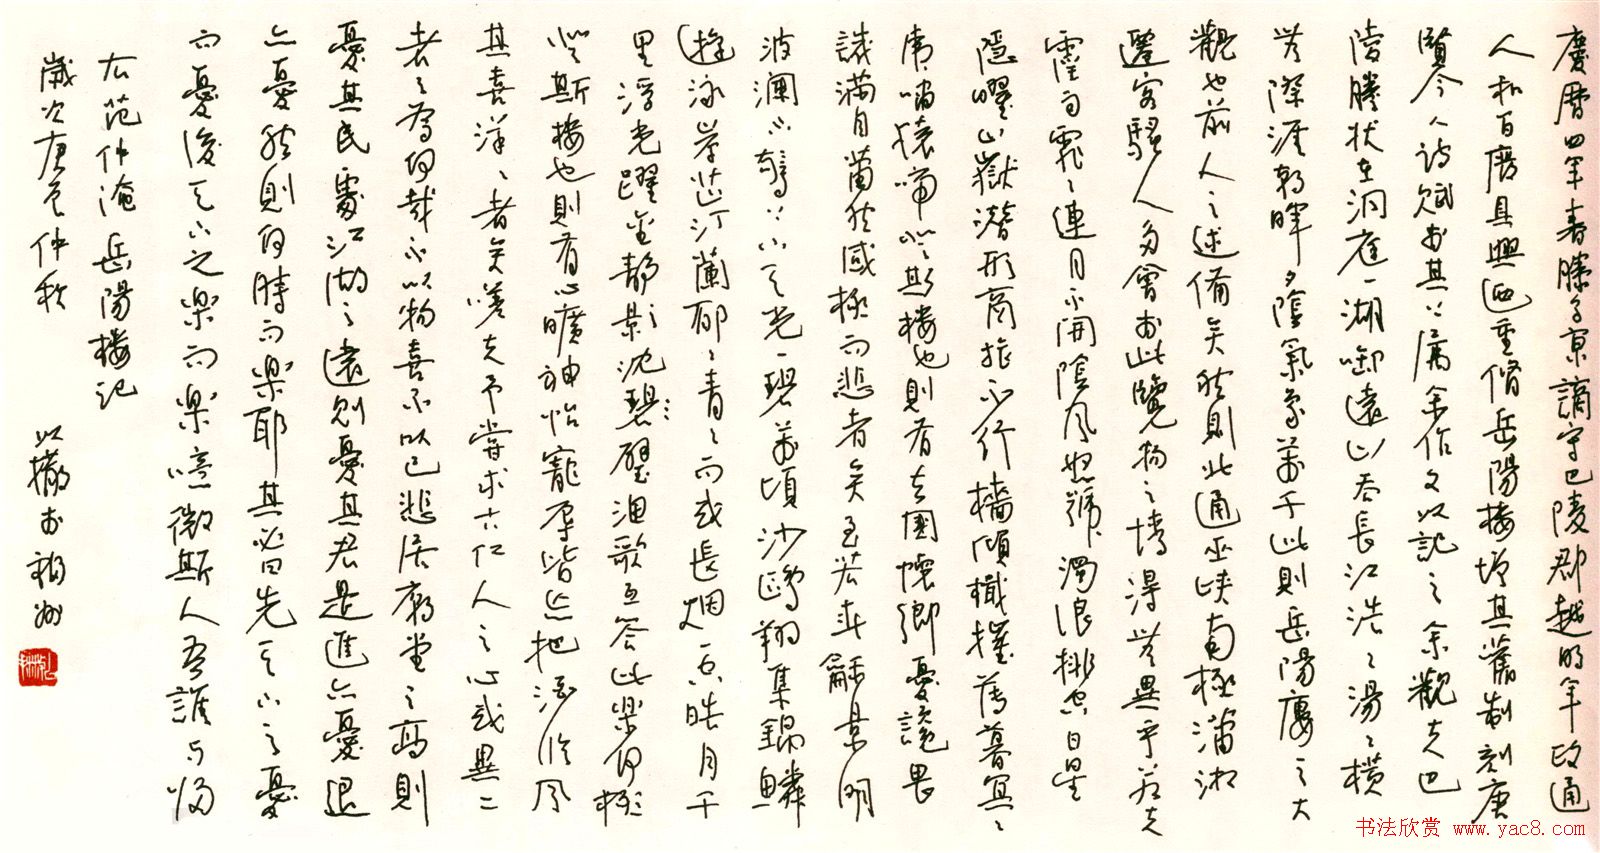 慶曆四年春滕子京謫守巴陵郡越明年政通
人和百廢具興迺重脩岳陽樓增其舊制刻唐
賢今人詩賦於其上屬余作文以記之余觀夫巴
陵勝狀在洞庭一湖啣遠山吞長江浩〻湯〻橫
無際涯朝暉夕陰氣象萬千此則岳陽樓之大
觀也前人之述備矣然則北通巫峽南極瀟湘
遷客騷人多會於此覽物之情得無異乎若夫
霪雨霏〻連月不開陰風怒號濁浪排空日星
隱曜山嶽潛形商旅不行檣傾檝摧薄暮冥〻
虎嘯猿啼登斯樓也則有去國懷鄉憂讒畏
譏滿目蕭然感極而悲者矣至若春龢景明
波瀾不驚上下天光一碧萬頃沙鷗翔集錦鱗
游泳岸芷汀蘭郁〻青〻而或長烟一空皓月千
里浮光躍金靜影沈碧璧漁歌互答此樂何極
登斯樓也則有心曠神怡寵辱皆忘把酒臨風
其喜洋〻者矣嗟夫予嘗求古仁人之心或異二
者之為何哉不以物喜不以己悲居廟堂之高則
憂其民處江湖之遠則憂其君是進亦憂退
亦憂然則何時而樂耶其必曰先天下之憂
而憂後天下之樂而樂噫微斯人吾誰與歸
右范仲淹岳陽樓記
歲次庚辰仲秋 以撒於福州
书法欣赏 www.yac8.com